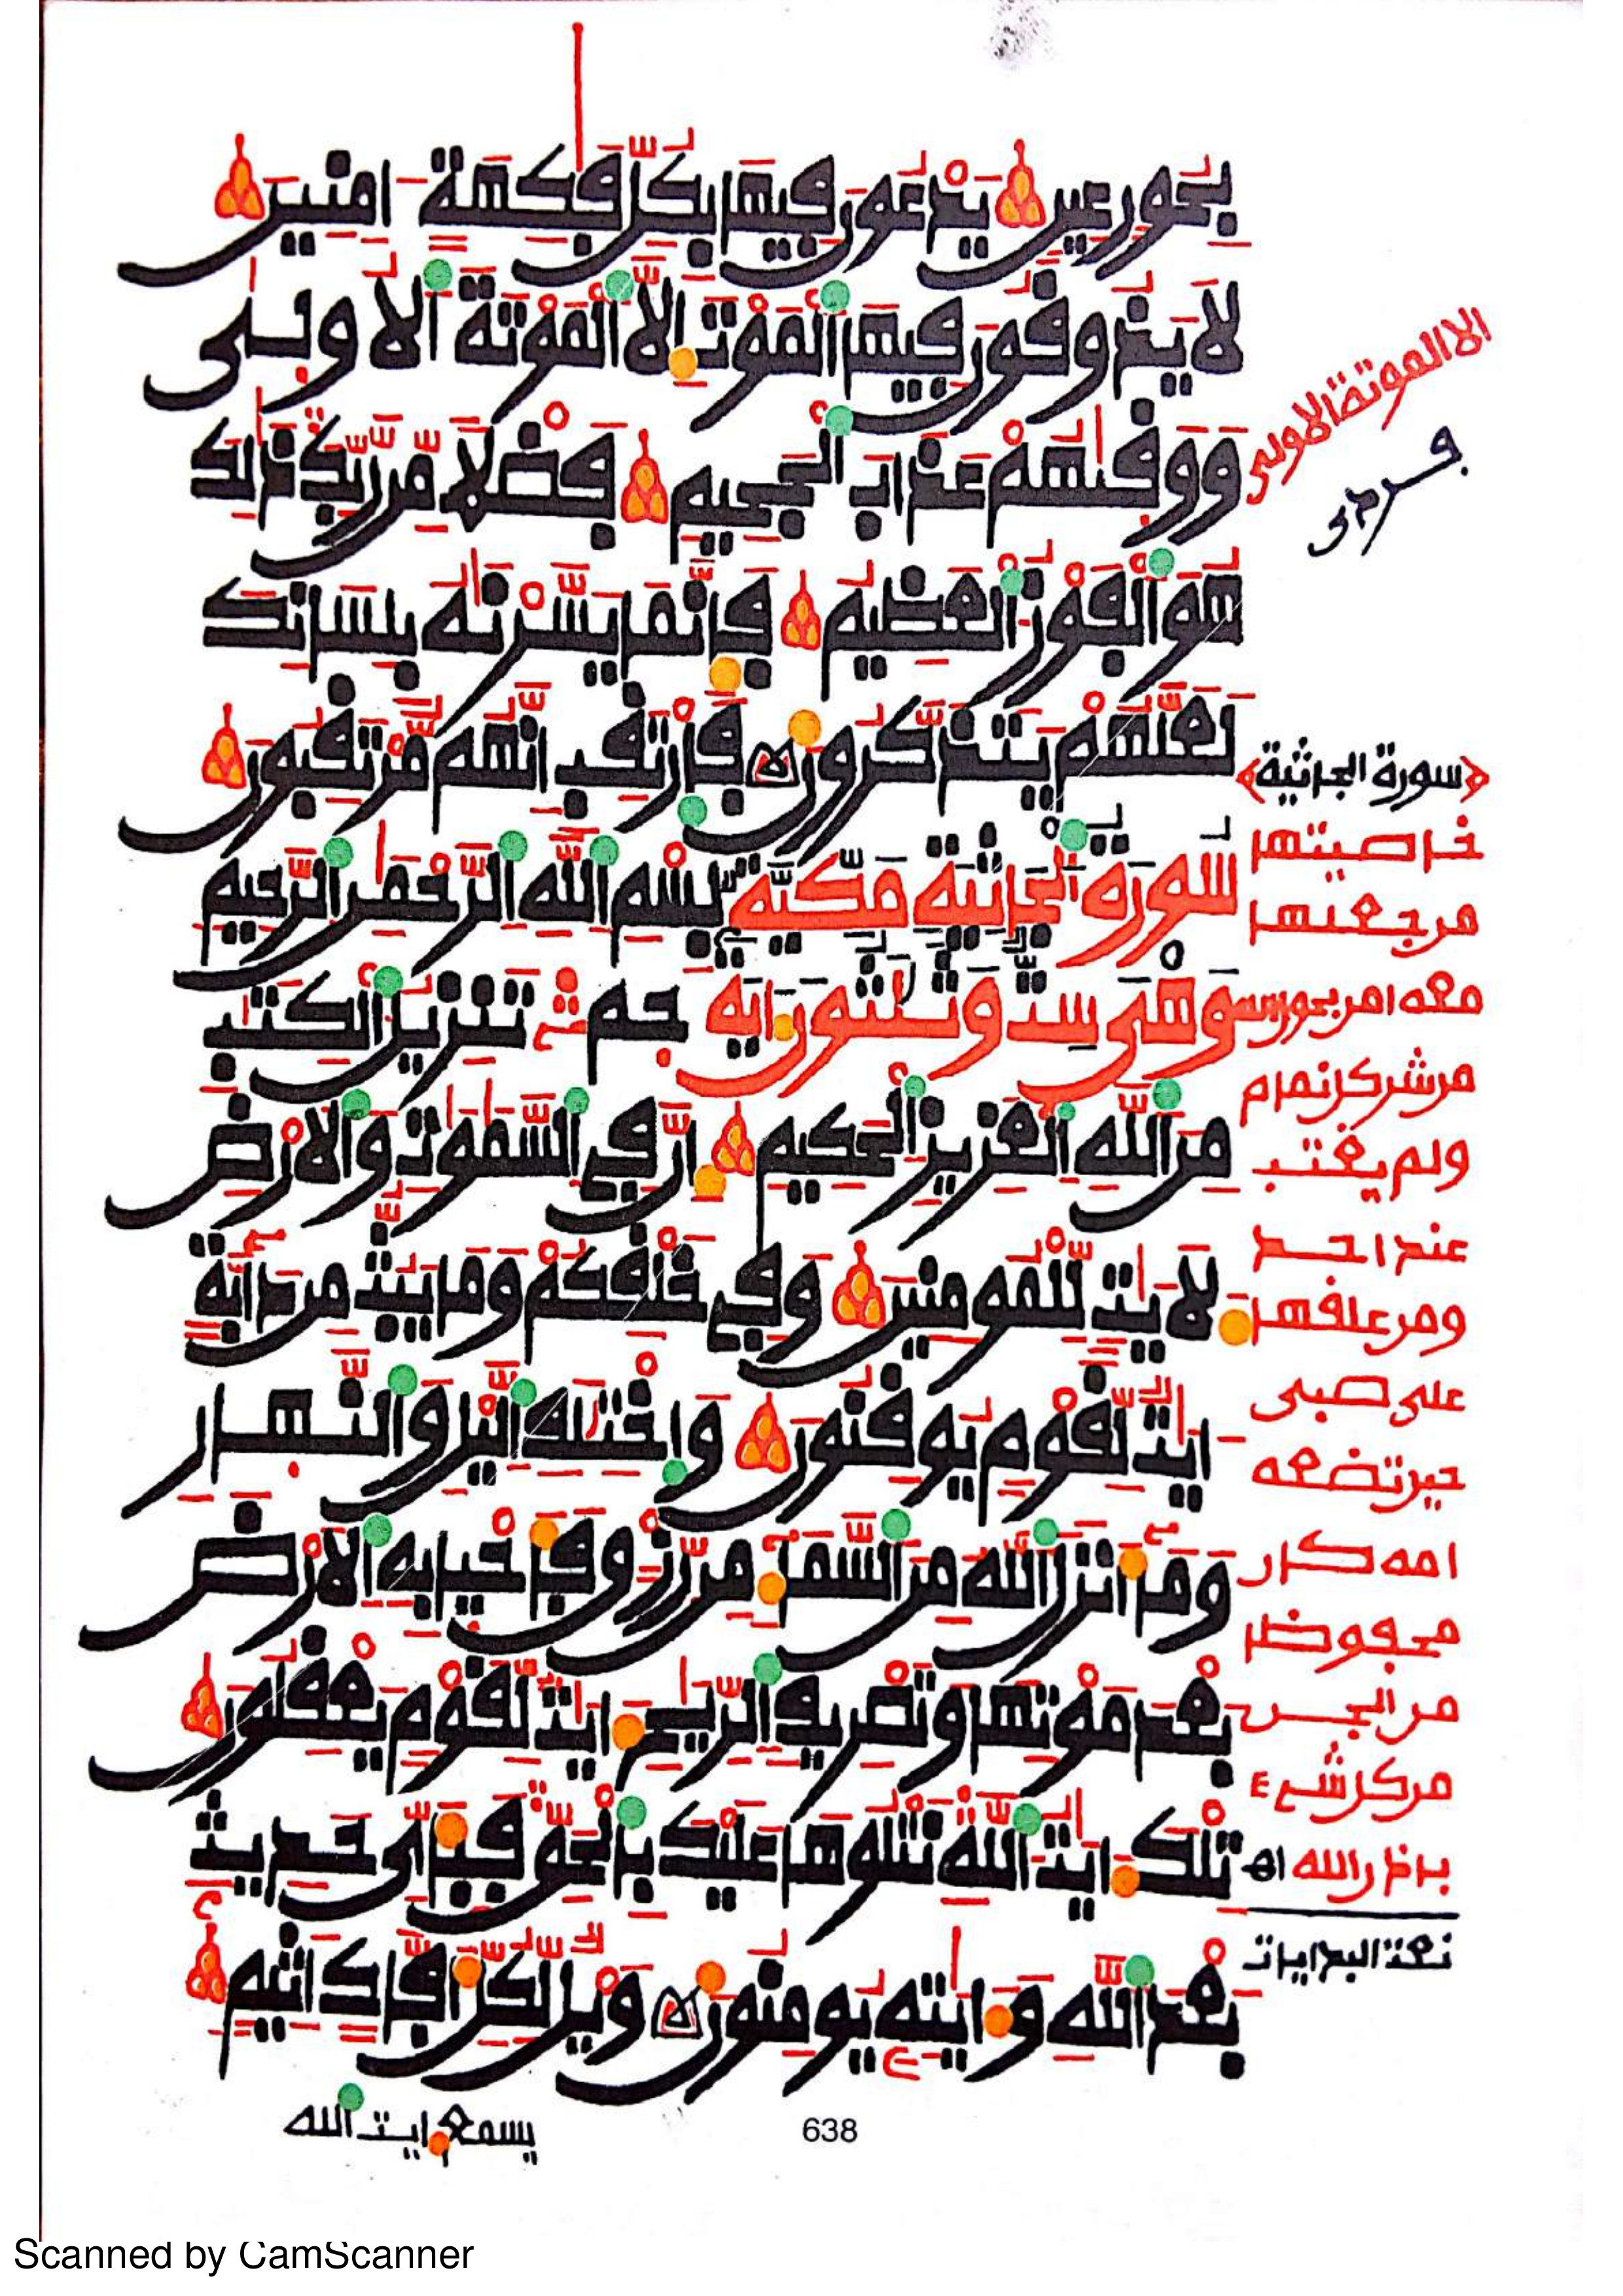 بحور عين يدعون فيها بكل فكهة امنين
لا يذوقون فيها الموت الا الموتة الاولى
ووقيهم عذاب الجحيم فضلا من ربك ذلك
هو الفوز العظيم فانما يسرنه بلسانك
لعلهم يتذكرون فارتقب انهم مرتقبون
سورة الجاثية مكية بسم الله الرحمن الرحيم
وهي ست وثلثون اية حم تنزيل الكتب
من الله العزيز الحكيم ان في السموت والارض
لايت للمومنين وفي خلقكم وما يبث من دابة
ايت لقوم يوقنون واختلف اليل والنهار
وما انزل الله من السماء من رزق فاحيا به الارض
بعد موتها وتصريف الريح ايت لقوم يعقلون
تلك ايت الله نتلوها عليك بالحق فباي حديث
بعد الله وايته يومنون ويل لكل افاك اثيم
الا الموتة الاولى
سورة الجاثية
خاصيتها
من جعلها
معه امن بحول
من شر كل نمام
ولم يغتب
عند احد
ومن علقها
على صبي
حين تضعه
امه كان
محفوظا
من الجن
من كل شيء
باذن الله اه
يسمع ايت الله
638
Scanned by CamScanner